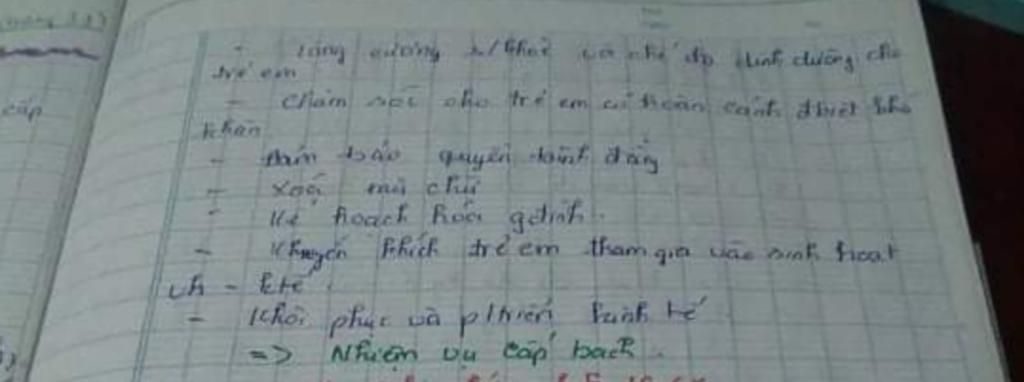 - tăng cường s/khoẻ và chế độ dinh dưỡng cho
trẻ em
- chăm sóc cho trẻ em có hoàn cảnh đbiệt khó
khăn
- đảm bảo quyền bình đẳng
- xoá mù chữ
- kế hoạch hoá gđình.
- khuyến khích trẻ em tham gia vào sinh hoạt
vh - ktế.
- khôi phục và ptriển kinh tế
=> Nhiệm vụ cấp bách.
cấp